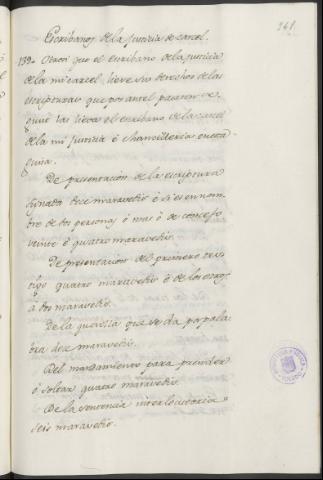 261.
Escribanos de la Justicia de carcel.
139. Otrosi que el escribano de la justicia
de la mi carcel lieve sus derechos de las
escripturas que por antel pasaren se-
gund las lieva el escribano de la carcel
de la mi justicia è chancilleria en esta
guisa.
De presentacion de la escriptura
signada doce maravedis è si es en nom-
bre de dos personas ó mas ó de concejo
veinte è quatro maravedis.
De presentacion del primero tes-
tigo quatro maravedis è de los otros
à dos maravedis.
De la querella que se da por pala-
bra doce maravedis.
Del mandamiento para prender
ò soltar quatro maravedis.
De la sentencia interlocutoria
seis maravedis.